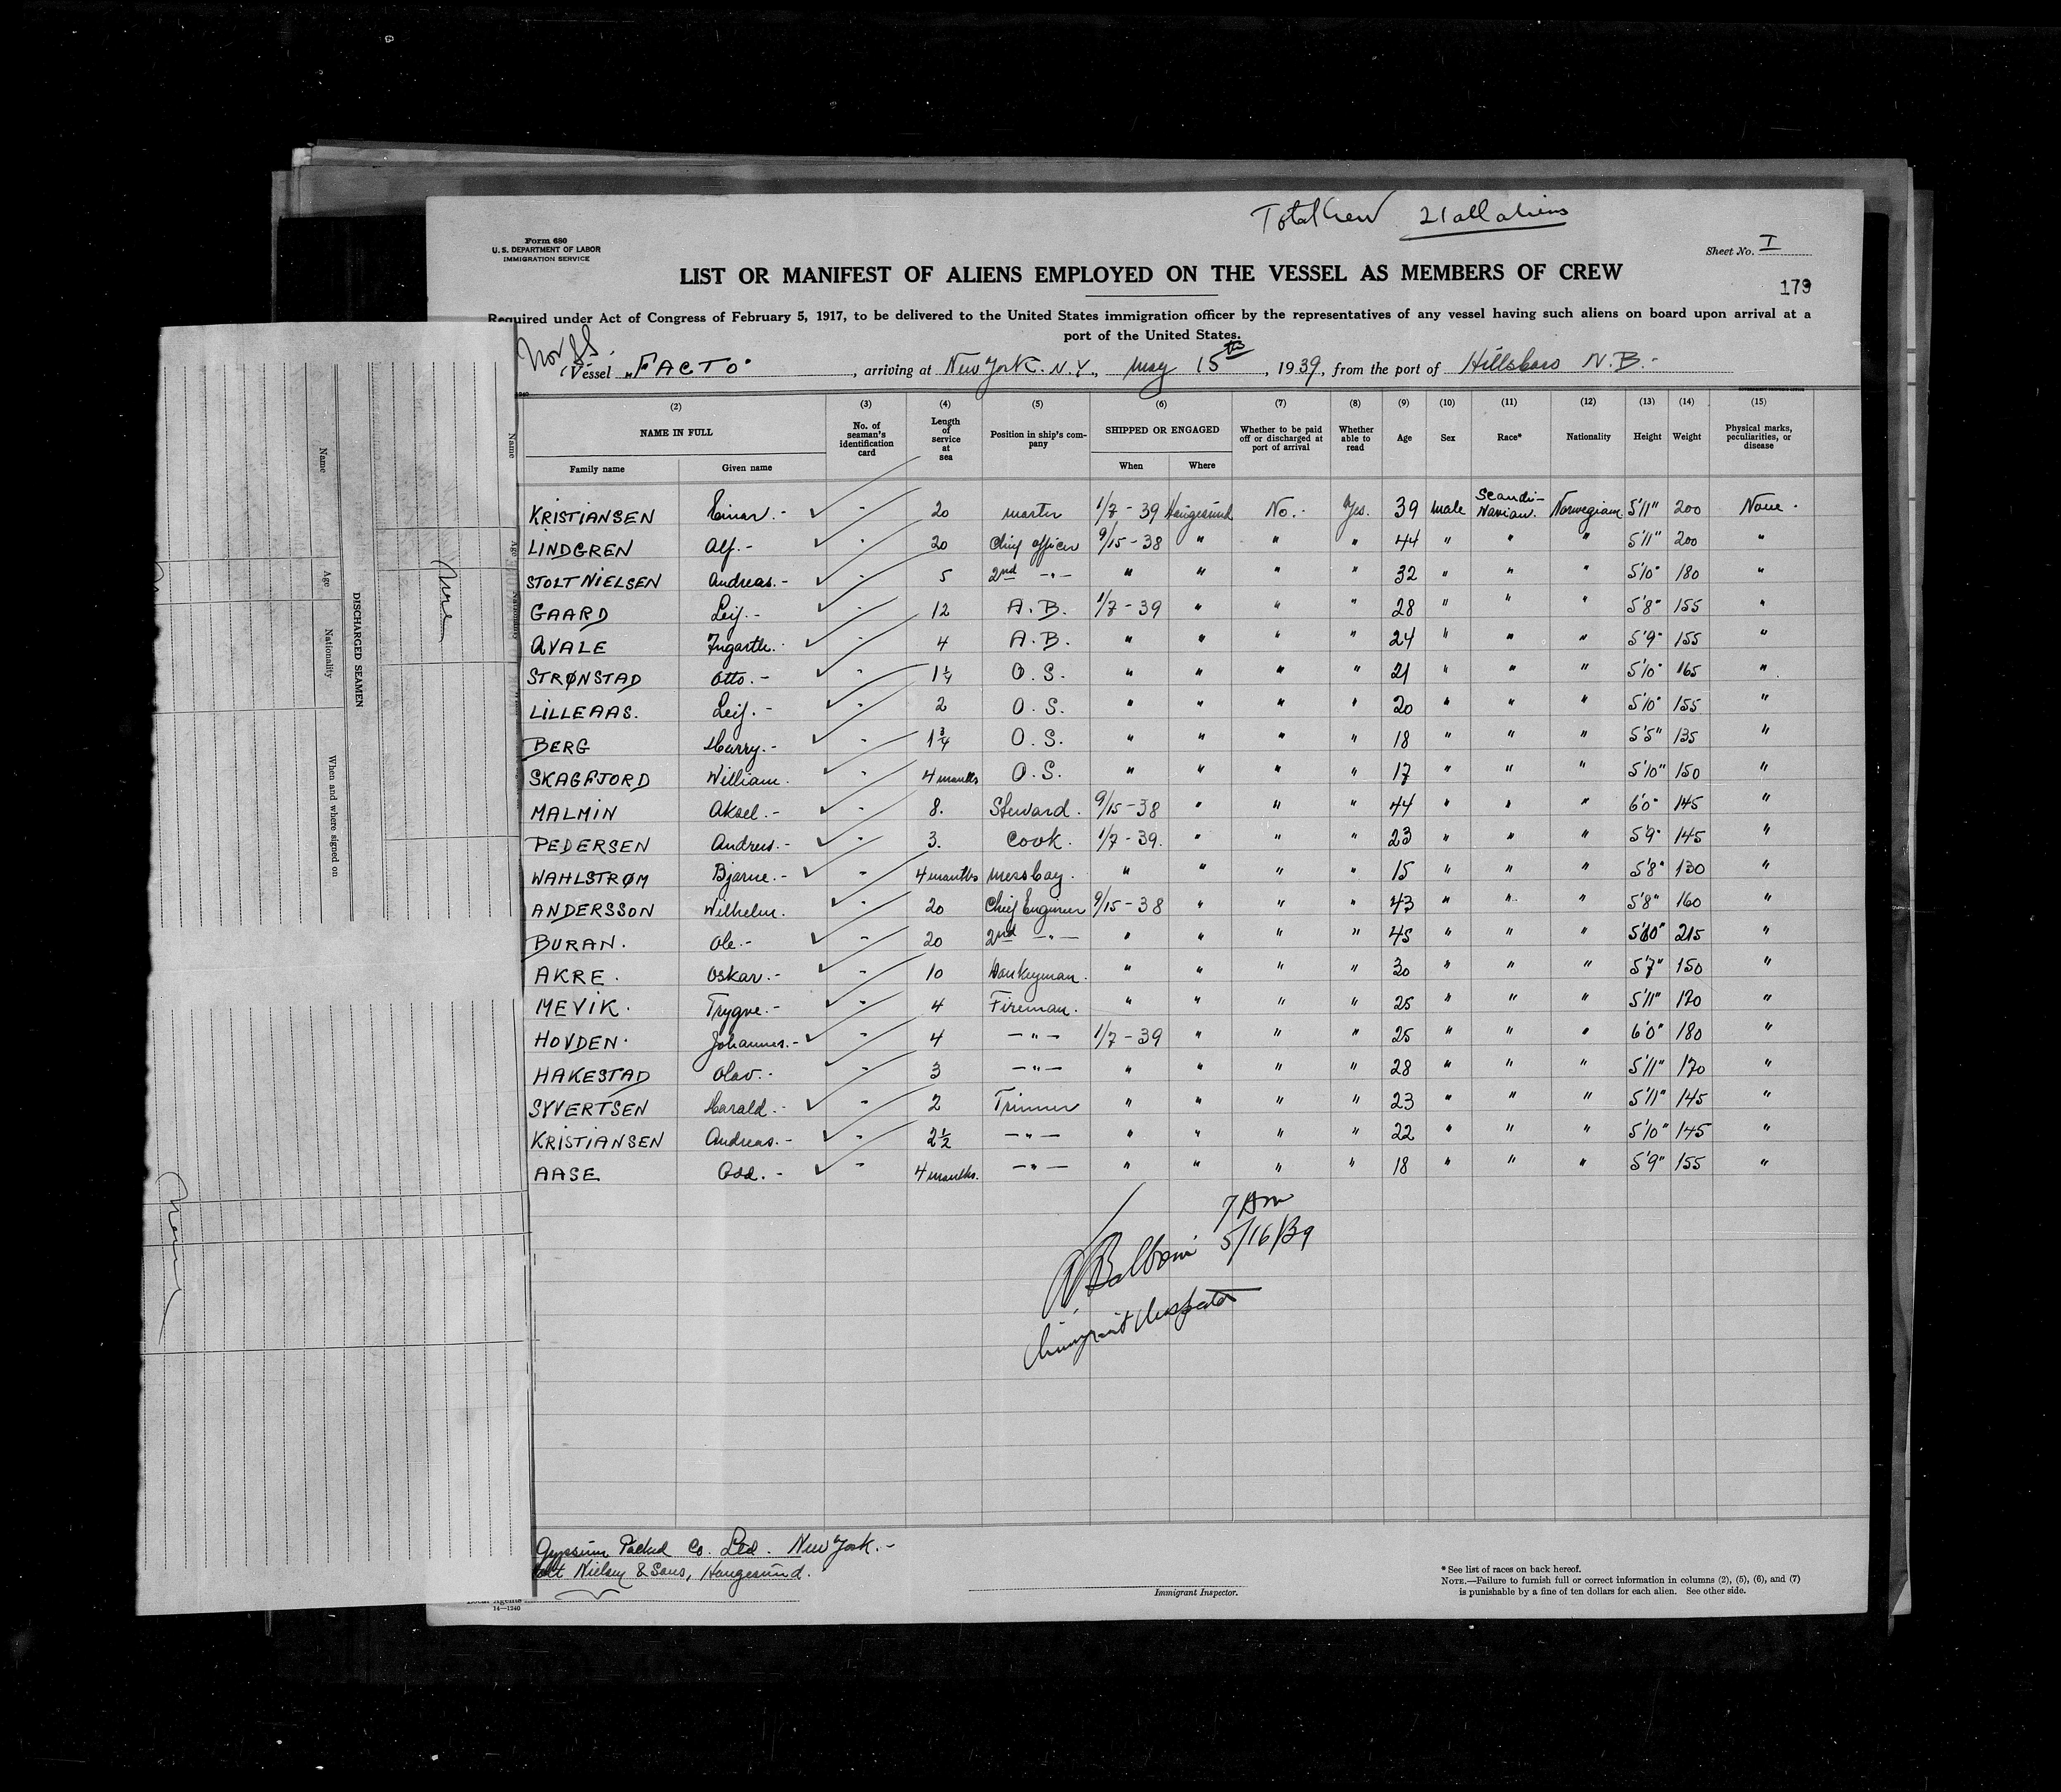 Total Crew 21 all aliens
Form 680
U. S. DEPARTMENT OF LABOR
IMMIGRATION SERVICE
Sheet No. I
LIST OR MANIFEST OF ALIENS EMPLOYED ON THE VESSEL AS MEMBERS OF CREW
179
Required under Act of Congress of February 5, 1917, to be delivered to the United States immigration officer by the representatives of any vessel having such aliens on board upon arrival at a
port of the United States.
Nor SS.
Vessel "FACTO", arriving at New York. N.Y., May 15th, 1939, from the port of Hillsboro N.B.-
(2) (3) (4) (5) (6) (7) (8) (9) (10) (11) (12) (13) (14) (15)
NAME IN FULL No. of seaman's identification card Length of service at sea Position in ship's company SHIPPED OR ENGAGED Whether to be paid off or discharged at port of arrival Whether able to read Age Sex Race* Nationality Height Weight Physical marks, peculiarities, or disease
Family name Given name When Where
KRISTIANSEN Einar.- ✓ - 20 master 1/7-39 Haugesund No.- Yes. 39 male Scandi-navian. Norwegian 5'11" 200 None.
LINDGREN Alf.- ✓ - 20 Chief officer 9/15-38 " " " 44 " " " 5'11" 200 "
STOLT NIELSEN Andreas.- ✓ - 5 2nd -"- " " " " 32 " " " 5'10" 180 "
GAARD Leif.- ✓ - 12 A.B. 1/7-39 " " " 28 " " " 5'8" 155 "
QVALE Ingarth. ✓ - 4 A.B. " " " " 24 " " " 5'9" 155 "
STRØNSTAD Otto.- ✓ - 1¼ O.S. " " " " 21 " " " 5'10" 165 "
LILLEAAS. Leif.- ✓ - 2 O.S. " " " " 20 " " " 5'10" 155 "
BERG Harry.- ✓ - 1¾ O.S. " " " " 18 " " " 5'5" 135 "
SKAGFJORD William. ✓ - 4 months O.S. " " " " 17 " " " 5'10" 150 "
MALMIN Aksel.- ✓ - 8. Steward. 9/15-38 " " " 44 " " " 6'0" 145 "
PEDERSEN Andreus.- ✓ - 3. Cook. 1/7-39. " " " 23 " " " 5'9" 145 "
WAHLSTRØM Bjarne.- ✓ - 4 months messboy. " " " " 15 " " " 5'8" 130 "
ANDERSSON Wilhelm. ✓ - 20 Chief Engineer 9/15-38 " " " 43 " " " 5'8" 160 "
BURAN. Ole.- ✓ - 20 2nd -"- " " " " 45 " " " 5'10" 215 "
AKRE. Oskar.- ✓ - 10 Donkeyman. " " " " 30 " " " 5'7" 150 "
MEVIK. Trygve.- ✓ - 4 Fireman. " " " " 25 " " " 5'11" 170 "
HOVDEN. Johannes.- ✓ - 4 -"- 1/7-39 " " " 25 " " " 6'0" 180 "
HAKESTAD Olav.- ✓ - 3 -"- " " " " 28 " " " 5'11" 170 "
SYVERTSEN Harald.- ✓ - 2 Trimmer " " " " 23 " " " 5'11" 145 "
KRISTIANSEN Andreas.- ✓ - 2½ -"- " " " " 22 " " " 5'10" 145 "
AASE Odd.- ✓ - 4 months. -"- " " " " 18 " " " 5'9" 155 "
7 AM
5/16/39
Immigrant Inspector
Gypsum Packed Co. Ltd. New York.-
Nielsen & Sons, Haugesund.
Local Agents
14—1240
Immigrant Inspector.
* See list of races on back hereof.
NOTE.—Failure to furnish full or correct information in columns (2), (5), (6), and (7)
is punishable by a fine of ten dollars for each alien. See other side.
DISCHARGED SEAMEN
Name
Age
Nationality
When and where signed on
Name
Age
Nationality